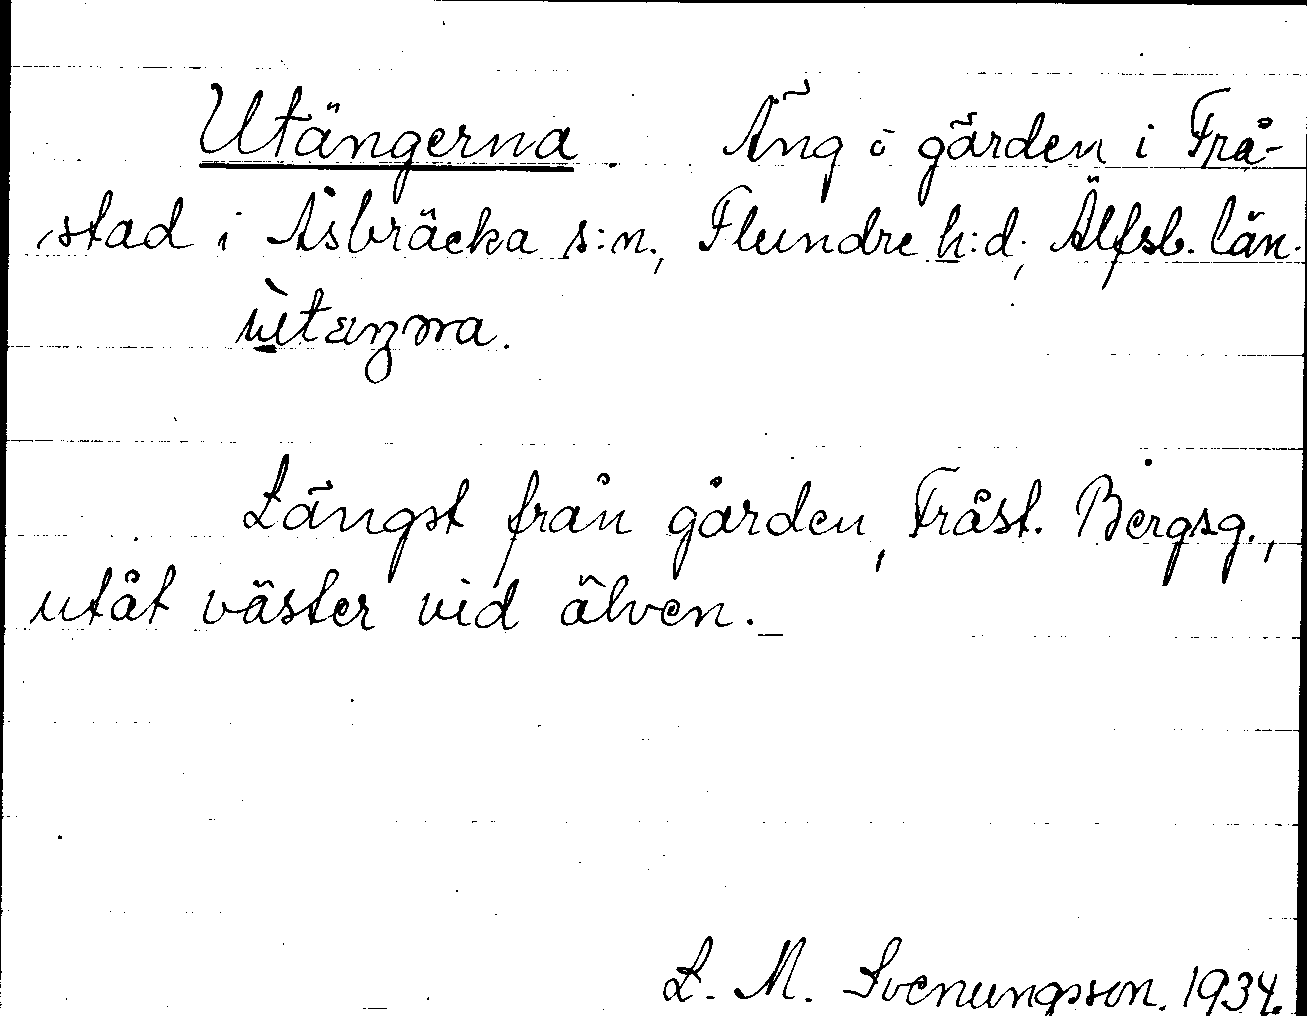 Utängerna. Äng å gärden i Frå-
stad i Åsbräcka s:n., Flundre h:d., Älfsb. län.
Längst från gården, Fråst. Bergsg.,
utåt väster vid älven.
L. M. Svenungsson. 1934.